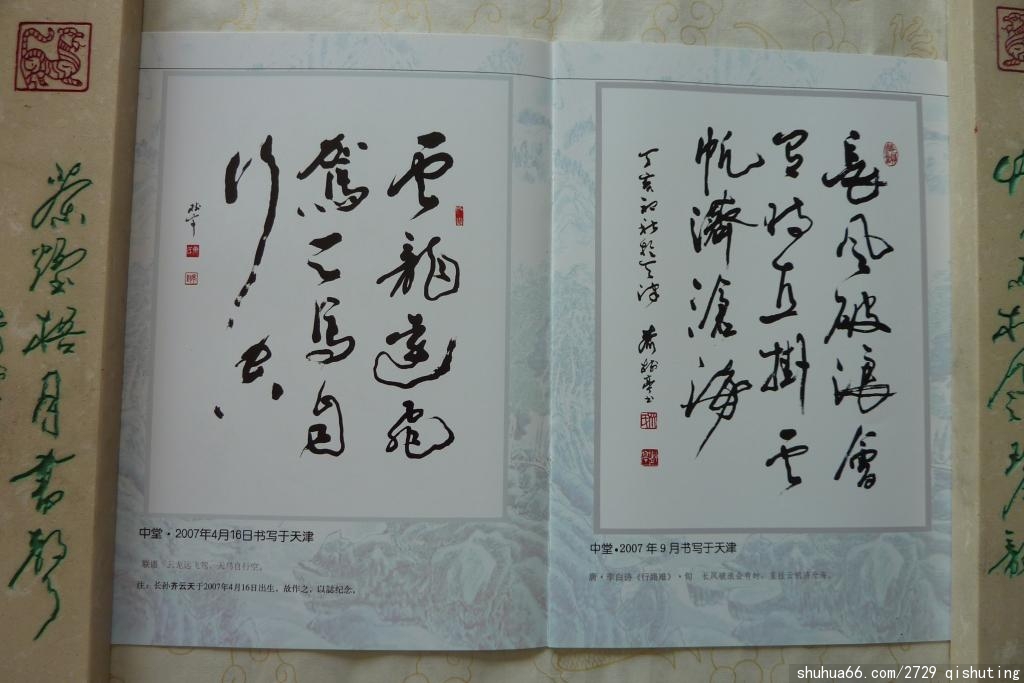 茶煙梧月書聲
雲龍遠飛
駕天馬自
行空
中堂・2007年4月16日书写于天津
联语 云龙远飞驾，天马自行空。
注：长孙齐云天于2007年4月16日出生，故作之，以誌纪念。
長風破浪會
有時直掛雲
帆濟滄海
丁亥初秋於天津
中堂•2007 年 9 月书写于天津
唐・李白诗《行路难》・句 长风破浪会有时，直挂云帆济沧海。
shuhua66.com/2729 qishuting